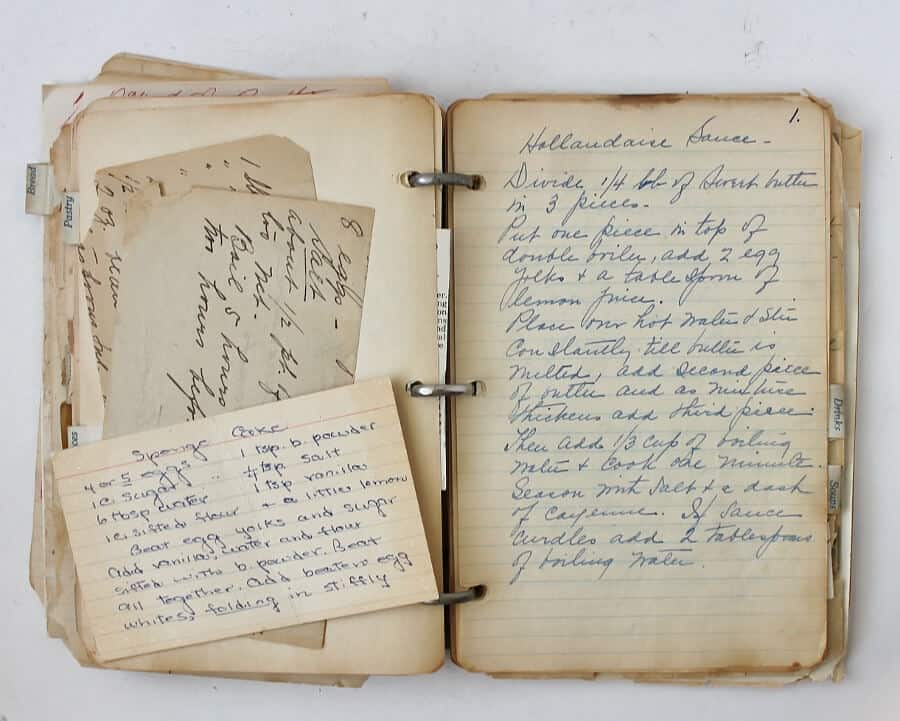 Bread
Pastry
8 eggs -
Salt
about 1/2 pt. of
Boil 5 hours
two hours
Sponge Cake
4 or 5 eggs
1 c. sugar
6 tbsp water
1 c. sifted flour
1 tsp. b. powder
1/4 tsp salt
1 tsp vanilla
+ a little lemon
Beat egg yolks and sugar
add vanilla, water and flour
sifted with b. powder. Beat
all together. Add beaten egg
whites, folding in stiffly
1.
Hollandaise Sauce -
Divide 1/4 lb of sweet butter
in 3 pieces.
Put one piece in top of
double broiler, add 2 egg
yolks & a tablespoon of
lemon juice.
Place over hot water & stir
constantly till butter is
melted, add second piece
of butter and as mixture
thickens add third piece.
Then add 1/3 cup of boiling
water & cook one minute.
Season with salt & a dash
of cayenne. If sauce
curdles add 2 tablespoons
of boiling water.
Drinks
Soups